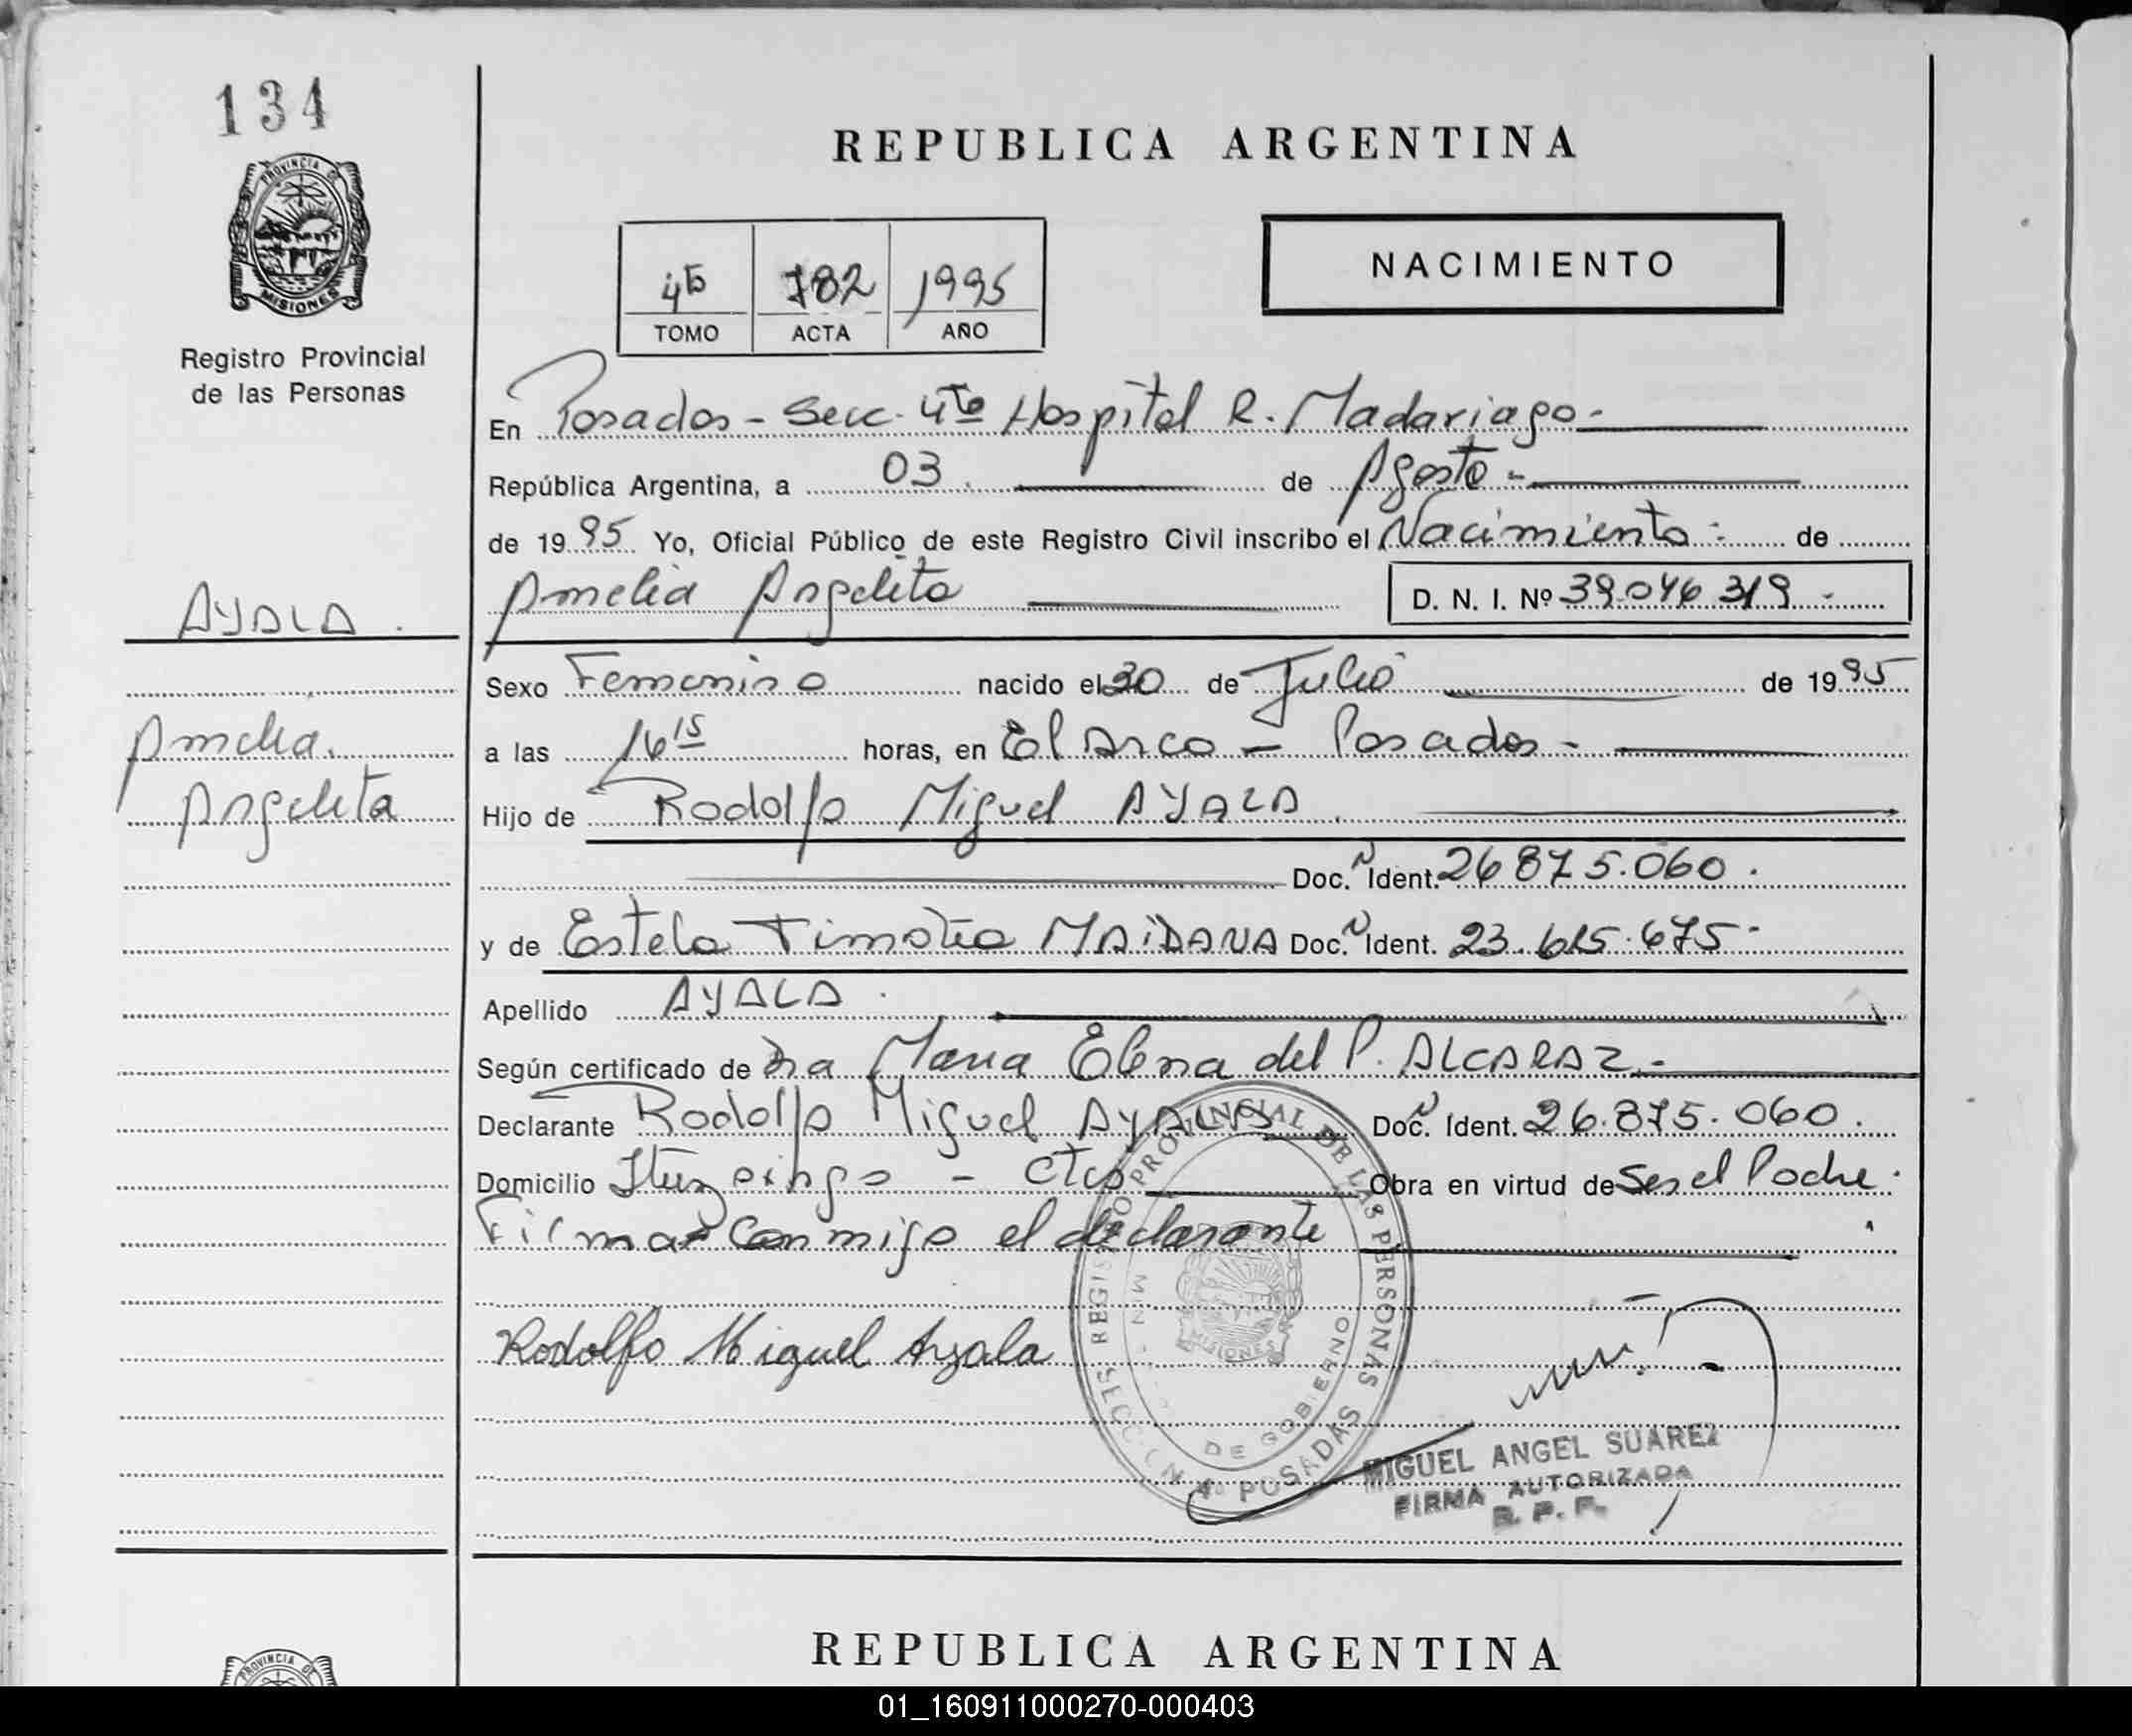 134
PROVINCIA DE
MISIONES
Registro Provincial
de las Personas
REPUBLICA ARGENTINA
45 782 1995
TOMO ACTA AÑO
NACIMIENTO
En Posadas - Secc. 4ta Hospital R. Madariaga -
República Argentina, a 03 de Agosto -
de 1995 Yo, Oficial Público de este Registro Civil inscribo el Nacimiento de
Amelia Angelita D. N. I. Nº 39.046.319 -
AYALA.
Amelia
Angelita
Sexo Femenino nacido el 30 de Julio de 1995
a las 16 15 horas, en El Arco - Posadas -
Hijo de Rodolfo Miguel AYALA.
Doc. N Ident. 26.875.060.
y de Estela Timotea MAIDANA Doc. N Ident. 23.615.675 -
Apellido AYALA.
Según certificado de Dra Maria Elena del P. ALCARAZ -
Declarante Rodolfo Miguel AYALA Doc. N Ident. 26.875.060.
Domicilio Ituzaingo - Ctes Obra en virtud de Ser el Padre.
Firma conmigo el declarante
Rodolfo Miguel Ayala
REGISTRO PROVINCIAL DE LAS PERSONAS
DE GOBIERNO
MISIONES
POSADAS
MIGUEL ANGEL SUAREZ
FIRMA AUTORIZADA
R. P. P.
PROVINCIA DE
REPUBLICA ARGENTINA
01_160911000270-000403